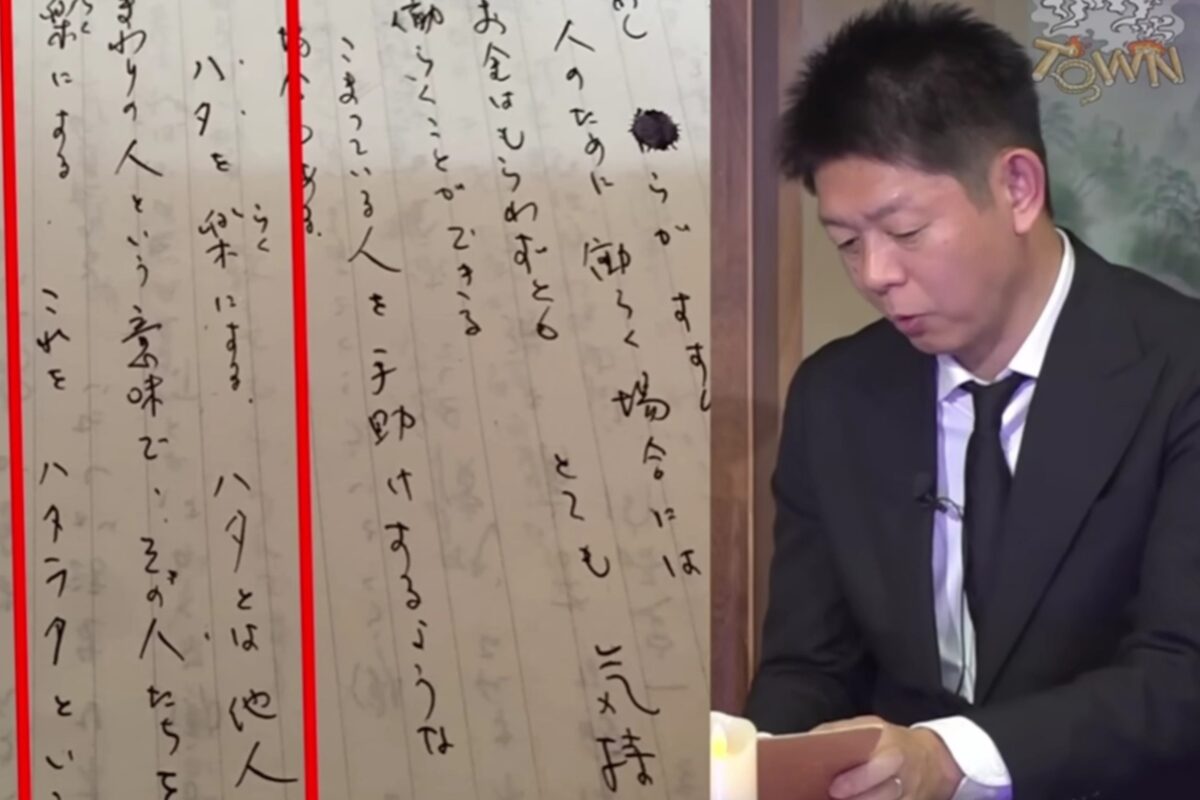 らが すす
人のために 働らく 場合には
お金はもらわずとも とても 気持
働らくことができる
こまっている人を 手助けするような
ある.
ハタを楽にする. ハタとは他人
まわりの人という意味で. その人たちを
楽にする. これを ハタラクとい
TOWN